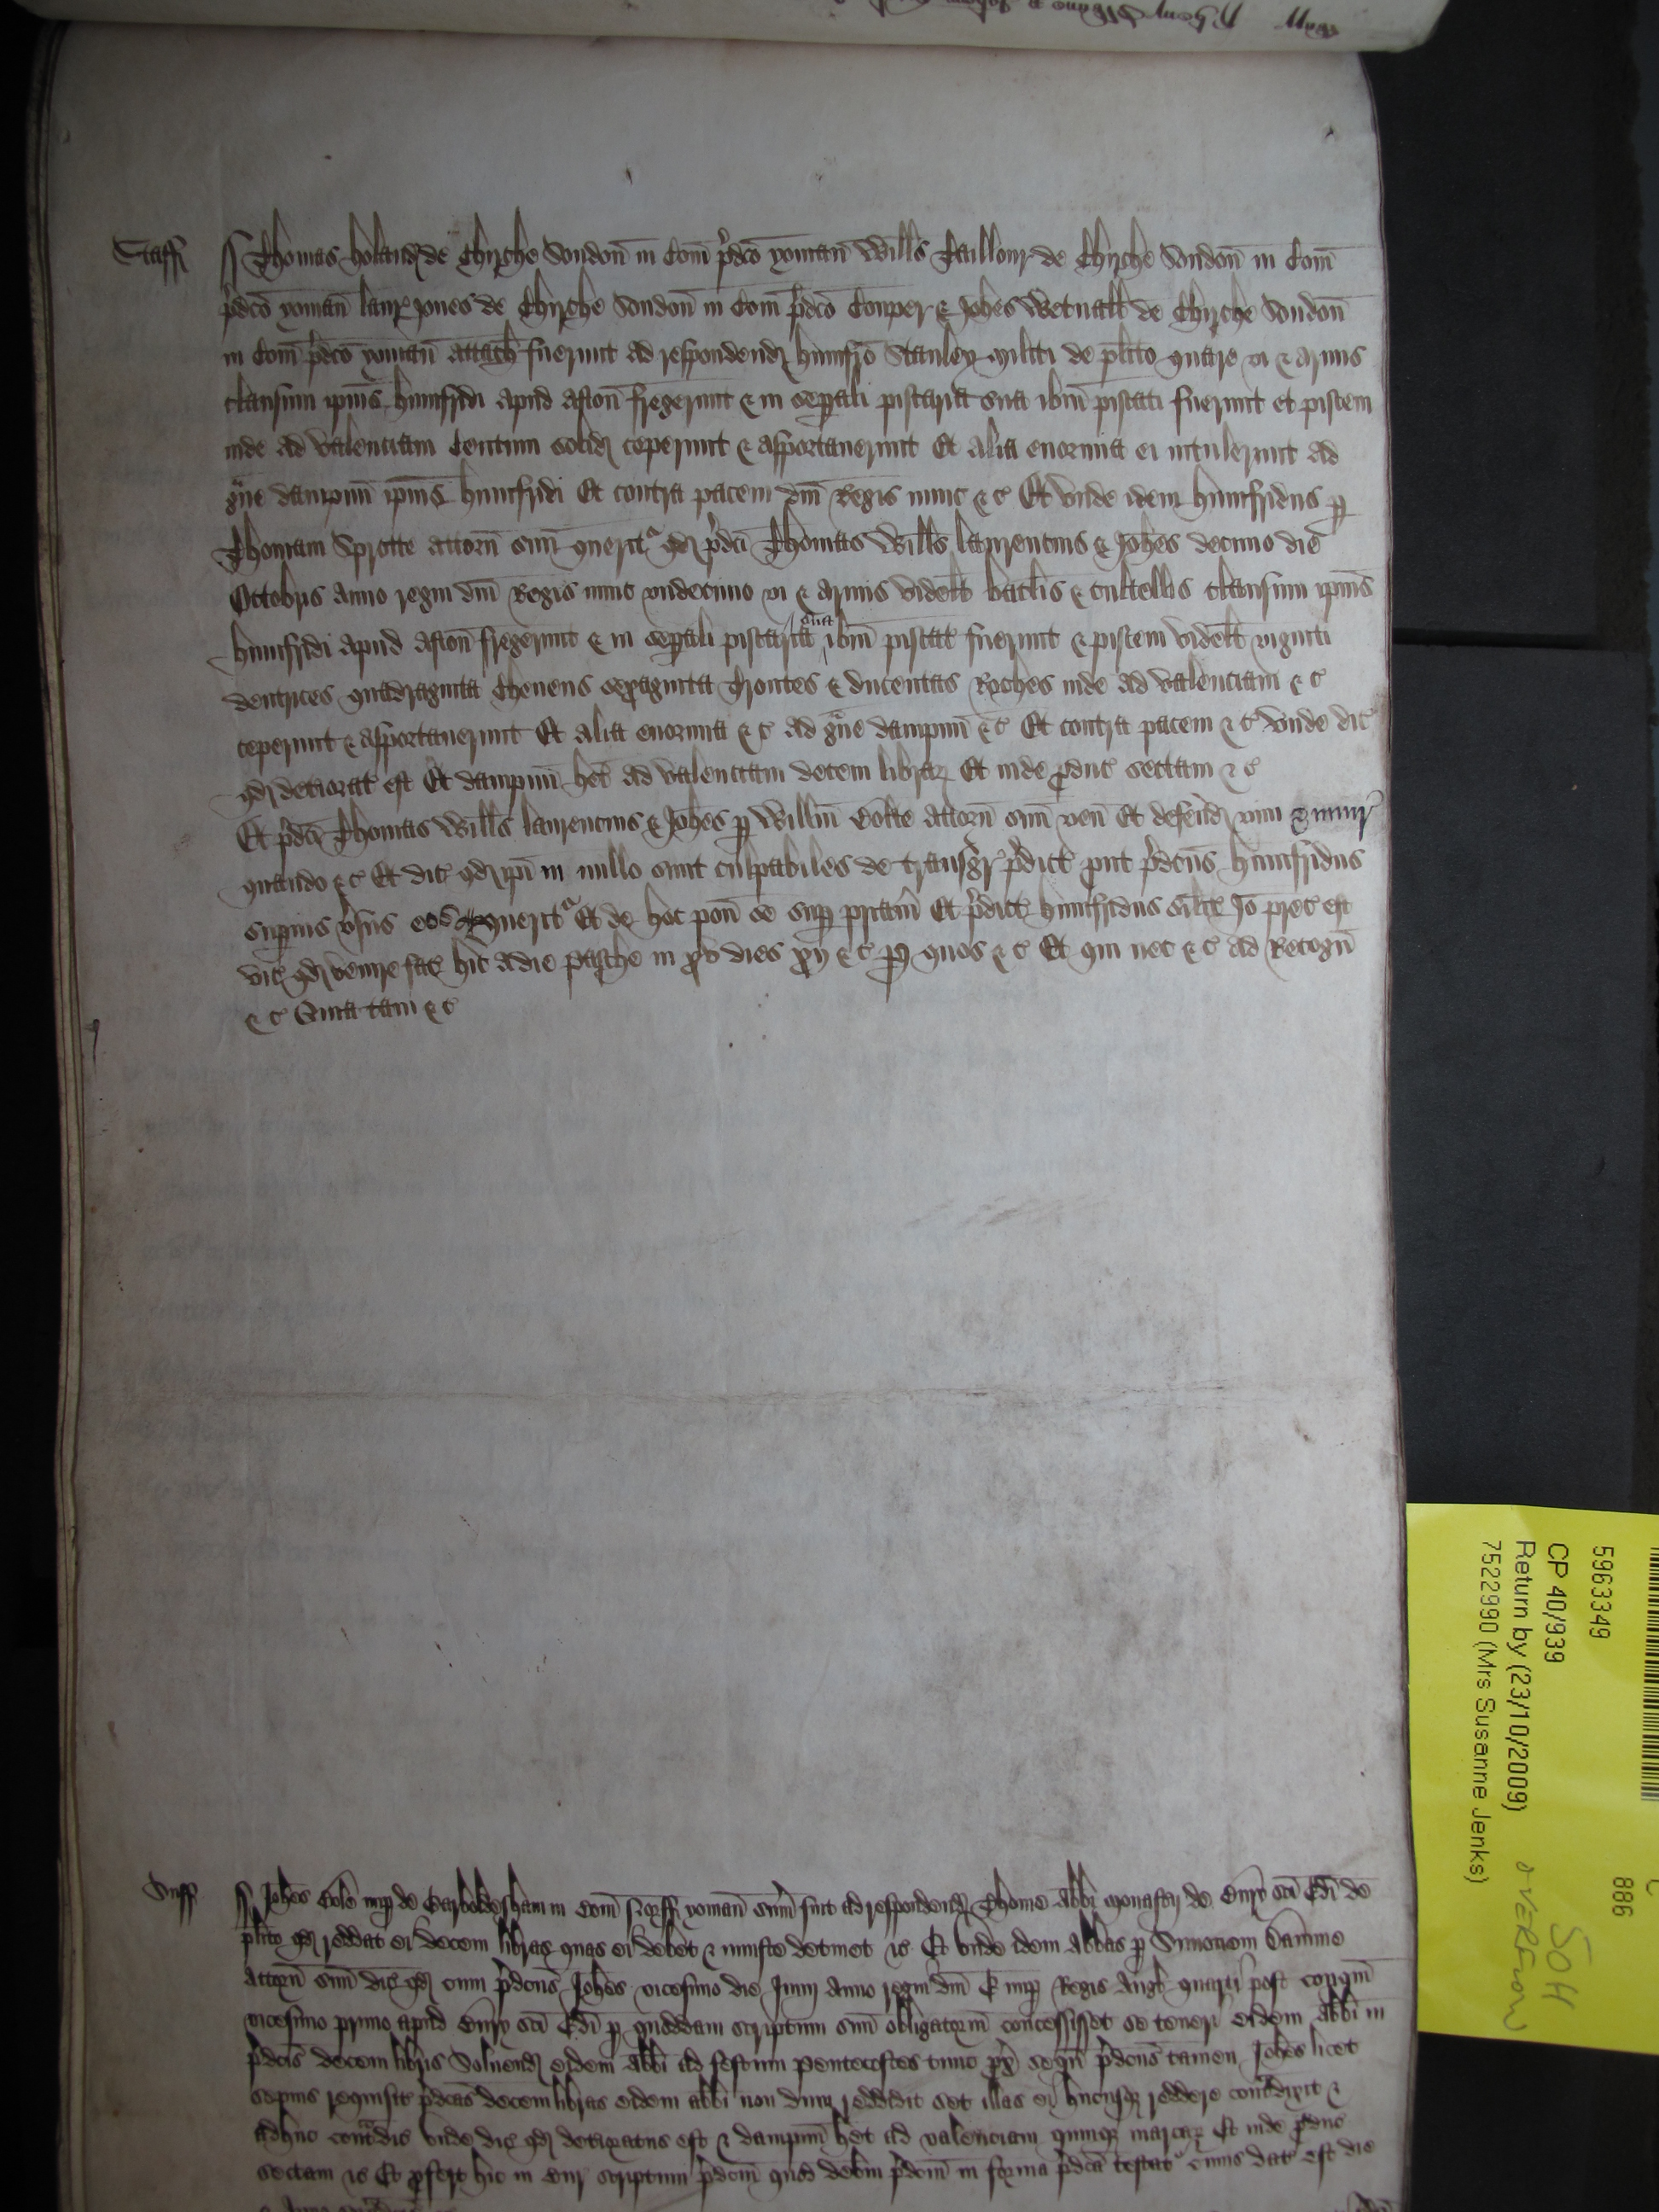 Staff
Thomas Holand de Chirche Sondon in Com p̄dco yoman Will̄s Taillour de Chirche Sondon in Com
p̄dco yoman Laur Jones de Chirche Sondon in Com p̄dco Couper & Joh̄es Wetnall de Chirche Sondon
in Com p̄dco yoman attach fuerunt ad respondend Humfr̄o Stanley militi de pl̄ito quare vi & armis
clausum ip̄ius Humfridi apud Aston fregerunt & in sep̄ali piscaria sua ib̄m piscati fuerunt et piscem
inde ad valenciam Centum solid ceperunt & asportauerunt Et alia enormia ei intulerunt ad
g̃ue dampnū ip̄ius Humfridi Et contra pacem dn̄i Regis nunc &c Et vnde idem Humfridus p
Thomam Sprotte attorn suū querit̃ qd p̄dc̄i Thomas Will̄s Laurencius & Joh̄es decimo die
Octobris anno regni dn̄i Regis nunc vndecimo vi & armis videl̄t bacl̄is & cultellis clausum ip̄ius
Humfridi apud Aston fregerunt & in sep̄ali piscaria sua ib̄m piscat fuerunt & piscem videl̄t viginti
dentrices quadraginta Cheuens sexaginta Troutes & ducentas Roches inde ad valenciam &c
ceperunt & asportauerunt Et alia enormia &c ad g̃ue dampnū &c Et contra pacem &c vnde dic
qd deteriorat est Et dampnū h̄et ad valenciam decem librar Et inde p̄duc sectam &c
Et p̄dc̄i Thomas Will̄s Laurencius & Joh̄es p Will̄m Cotte attorn suū ven Et defend vim & iniur
quando &c Et dic qd ip̄i in nullo sunt culpabiles de transgr p̄dict put p̄dcus Humfridus
superius vsus eos querit̃ Et de hoc pon se sup pr̄iam Et p̄dict Humfridus sil̄it Jo prec est
vic qd venire fac hic a die Pasche in xv dies xij &c p quos &c Et qui nec &c ad Recogn
&c Quia tam &c
Suff
Joh̄es Cole nup de Garboldesham in Com Norff yoman sum̄ fuit ad respondend Thome Abb̄i Monasterij de Bury Sc̄i Ed̄i de
pl̄ito qd reddat ei decem libras quas ei debet & iniuste detinet &c Et vnde idem Abbas p Simonem Damme
attorn suū dic qd cum p̄dcus Joh̄es vicesimo die Junij Anno regni dn̄i E nup Regis Angl quarti post conqm̄
vicesimo primo apud Bury Sc̄i Ed̄i p quoddam scriptum suū obligatoriū concessisset se teneri eidem Abb̄i in
p̄dcis decem libris Soluend eidem Abb̄i ad festum Pentecostes tunc px̄ sequen p̄dcus tamen Joh̄es licet
sepius requisit p̄dcas decem libras eidem Abb̄i non dum reddidit set illas ei hucusq reddere cont̃dixit &
adhuc cont̃dic vnde dic qd deterioratus est & dampnū h̄et ad valenciam quinq marcar Et inde p̄duc
sectam &c Et p̄fert hic in Cur scriptum p̄dc̄m quod debitū p̄dc̄m in forma p̄dc̄a testat̃ cuius dat est die
5963349
CP 40/939
Return by (23/10/2009)
7522990 (Mrs Susanne Jenks)
886
SOH
OVERFLOW